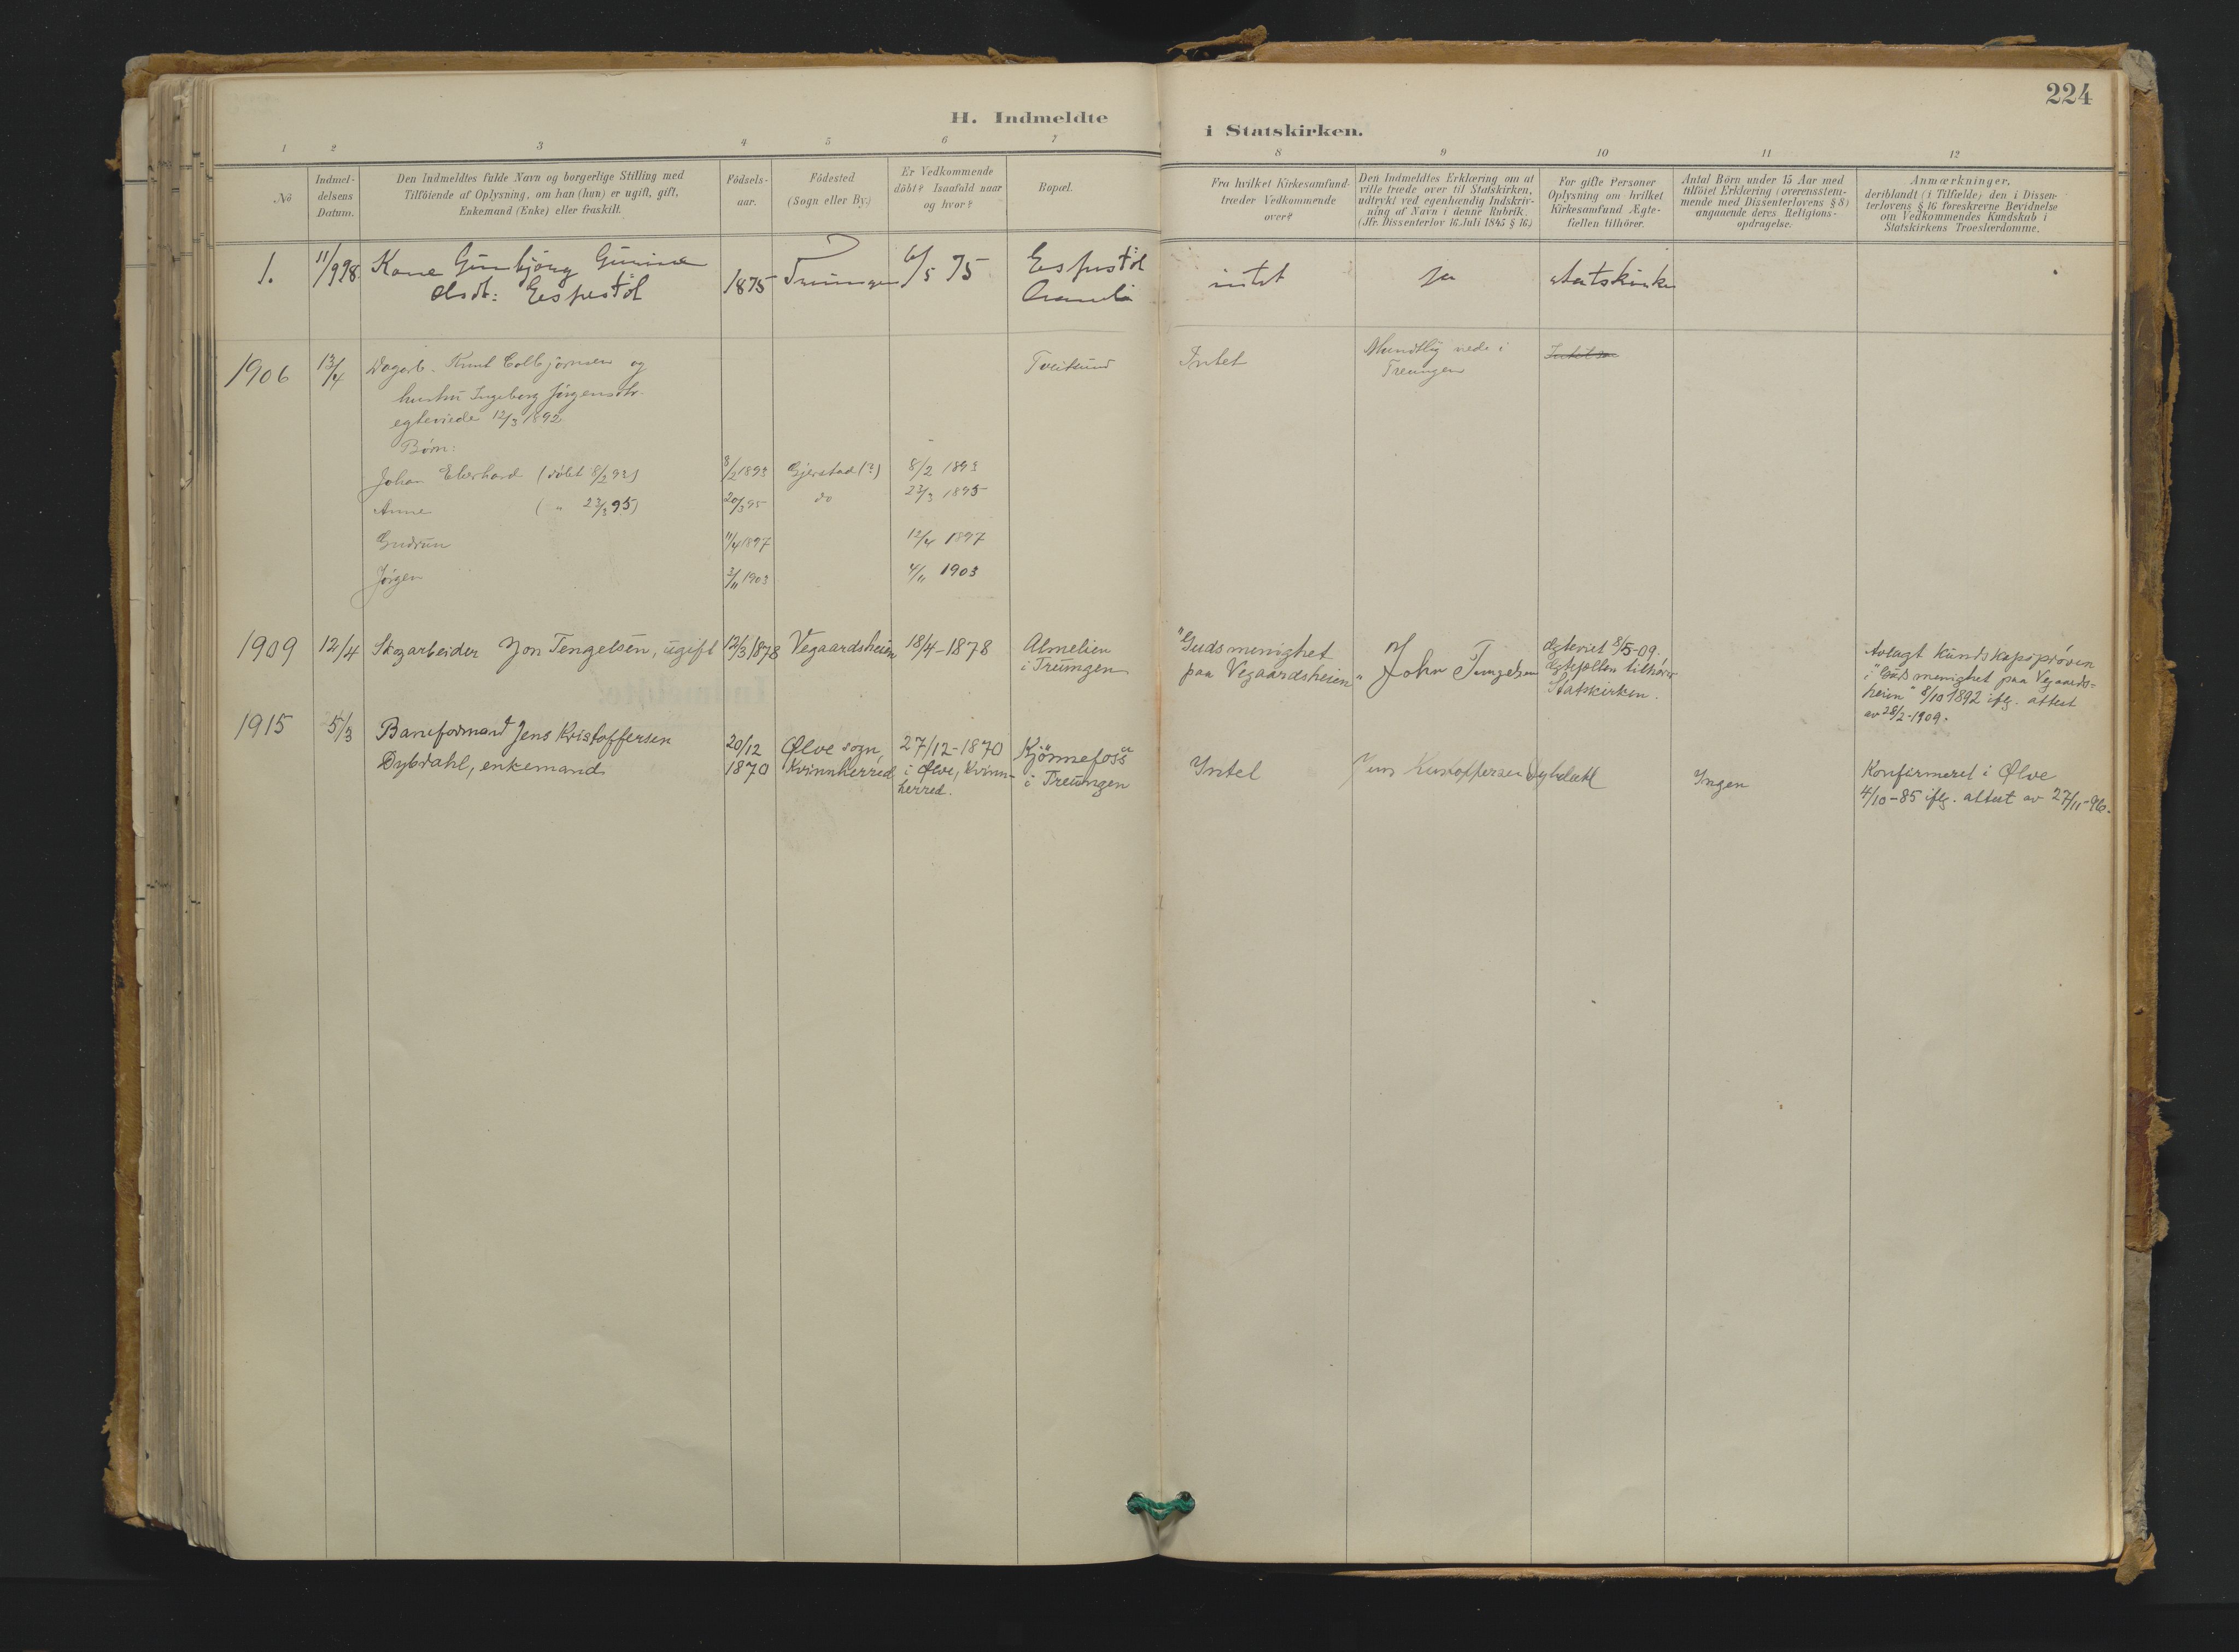 224
H. Indmeldte i Statskirken.
1 2 3 4 5 6 7 8 9 10 11 12
No
Indmel-
delsens
Datum.
Den Indmeldtes fulde Navn og borgerlige Stilling med
Tilföiende af Oplysning, om han (hun) er ugift, gift,
Enkemand (Enke) eller fraskilt.
Födsels-
aar.
Födested
(Sogn eller By.)
Er Vedkommende
döbt? Isaafald naar
og hvor?
Bopæl.
Fra hvilket Kirkesamfund
træder Vedkommende
over?
Den Indmeldtes Erklæring om at
ville træde over til Statskirken,
udtrykt ved egenhændig Indskriv-
ning af Navn i denne Rubrik.
(Jfr. Dissenterlov 16 Juli 1845 § 16.)
For gifte Personer
Oplysning om hvilket
Kirkesamfund Ægte-
fællen tilhörer.
Antal Börn under 15 Aar med
tilföiet Erklæring (overensstem-
mende med Dissenterlovens § 8)
angaaende deres Religions-
opdragelse.
Anmærkninger,
deriblandt (i Tilfælde) den i Dissen-
terlovens § 16 foreskrevne Bevidnelse
om Vedkommendes Kundskab i
Statskirkens Troeslærdomme.
1.
11/9 98
Kone Gunbjörg Gunnar
olsdt: Espestöl
1875
Treungen
6/5 75
Espestöl
intet
ja
statskirke
1906
13/4
Dagarb. Knut Colbjørnsen og
hustru Ingeborg Jørgensdtr.
egteviede 12/3 1892
Børn:
Johan Eberhard (døbt 8/2 93)
8/2 1893
Gjerstad (?)
8/2 1893
Anne ( " 23/3 95)
20/3 95
do
23/3 1895
Gudrun
11/4 1897
12/4 1897
Jørgen
3/11 1903
4/11 1903
Tveitsund
Intet
Mundtlig nede i
Treungen
1909
12/4
Skogarbeider Jon Tengelsen, ugift
12/3 1878
Vegaardsheien
18/4-1878
Almelien
i Treungen
"Guds menighet
paa Vegaardsheien"
John Tengelsen
Ægteviet 8/5-09.
Ægtefellen tilhører
Statskirken.
Avlagt kundskapsprøven
i "Guds menighet paa Vegaards-
heien" 8/10 1892 iflg. attest
av 28/2-1909.
1915
5/3
Baneformand Jens Kristoffersen
Dybdahl, enkemand
20/12
1870
Ølve sogn,
Kvinnherred
27/12-1870
i Ølve, Kvinn-
herred.
Kjønnefoss
i Treungen
Intet
Jens Kristoffersen Dybdahl
Ingen
Konfirmeret i Ølve
4/10-85 iflg. attest av 27/11-96.